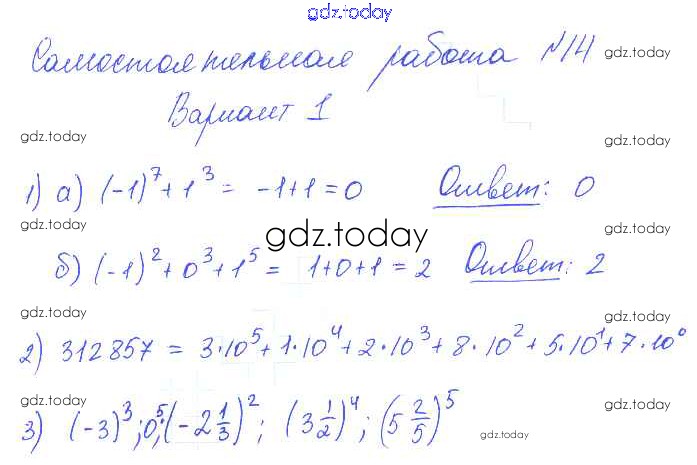 gdz.today
Самостоятельная работа №14
gdz.today
Вариант 1
gdz.today
gdz.today
1) а) (-1)⁷ + 1³ = -1+1=0 Ответ: 0
gdz.today
gdz.today
gdz.today
б) (-1)² + 0³ + 1⁵ = 1+0+1 = 2 Ответ: 2
gdz.today
gdz.today
2) 312857 = 3·10⁵ + 1·10⁴ + 2·10³ + 8·10² + 5·10¹ + 7·10⁰
gdz.today
gdz.today
3) (-3)³; 0⁵; (-2 1/3)²; (3 1/2)⁴; (5 2/5)⁵
gdz.today